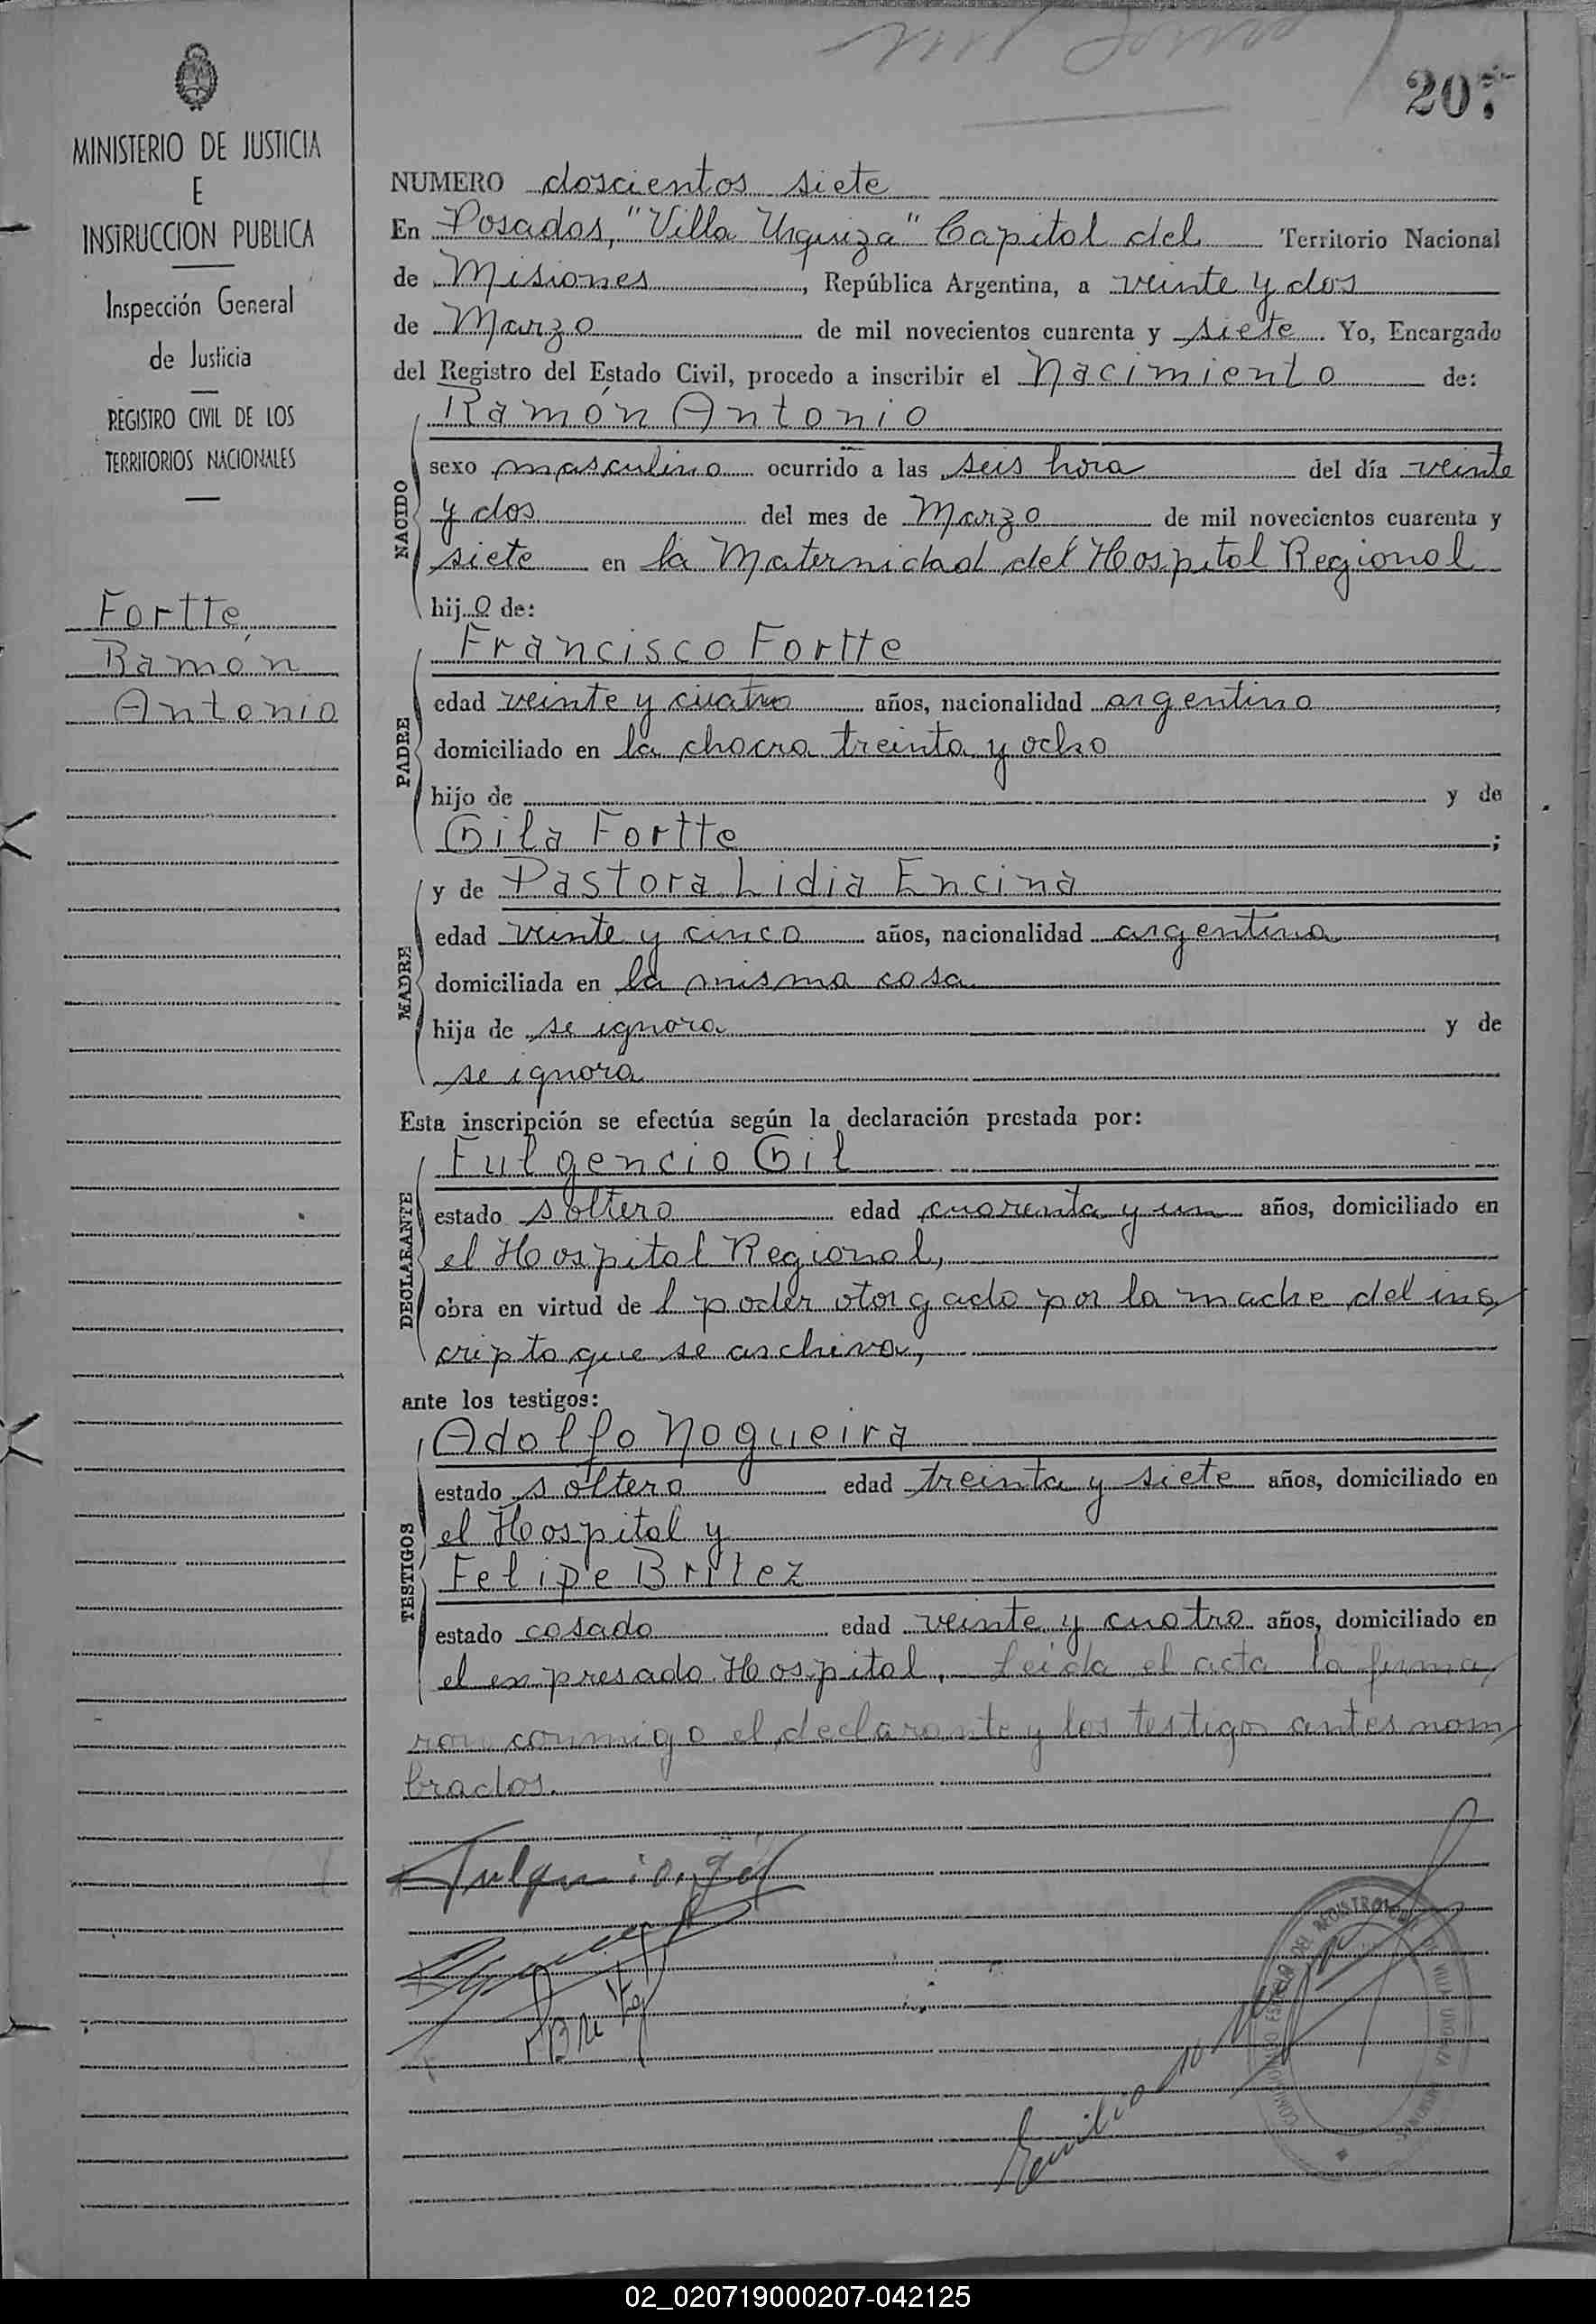 207
MINISTERIO DE JUSTICIA
E
INSTRUCCION PUBLICA
Inspección General
de Justicia
REGISTRO CIVIL DE LOS
TERRITORIOS NACIONALES
Fortte,
Ramón
Antonio
NUMERO doscientos siete
En Posadas, "Villa Urquiza" Capital del Territorio Nacional
de Misiones, República Argentina, a veinte y dos
de Marzo de mil novecientos cuarenta y siete. Yo, Encargado
del Registro del Estado Civil, procedo a inscribir el Nacimiento de:
NACIDO
Ramón Antonio
sexo masculino ocurrido a las seis hora del día veinte
y dos del mes de Marzo de mil novecientos cuarenta y
siete en la Maternidad del Hospital Regional
hijo de:
PADRE
Francisco Fortte
edad veinte y cuatro años, nacionalidad argentino,
domiciliado en la chacra treinta y ocho
hijo de y de
Gila Fortte;
MADRE
y de Pastora Lidia Encina
edad veinte y cinco años, nacionalidad argentina,
domiciliada en la misma casa
hija de se ignora y de
se ignora
Esta inscripción se efectúa según la declaración prestada por:
DECLARANTE
Fulgencio Gil
estado soltero edad cuarenta y un años, domiciliado en
el Hospital Regional,
obra en virtud de l poder otorgado por la madre del ins
cripto que se archiva,
ante los testigos:
TESTIGOS
Adolfo Nogueira
estado soltero edad treinta y siete años, domiciliado en
el Hospital y
Felipe Britez
estado casado edad veinte y cuatro años, domiciliado en
el expresado Hospital. Leida el acta la firma
ron conmigo el declarante y los testigos antes nom
brados.
Fulgencio Gil
F Britez
Emilio
02_020719000207-042125